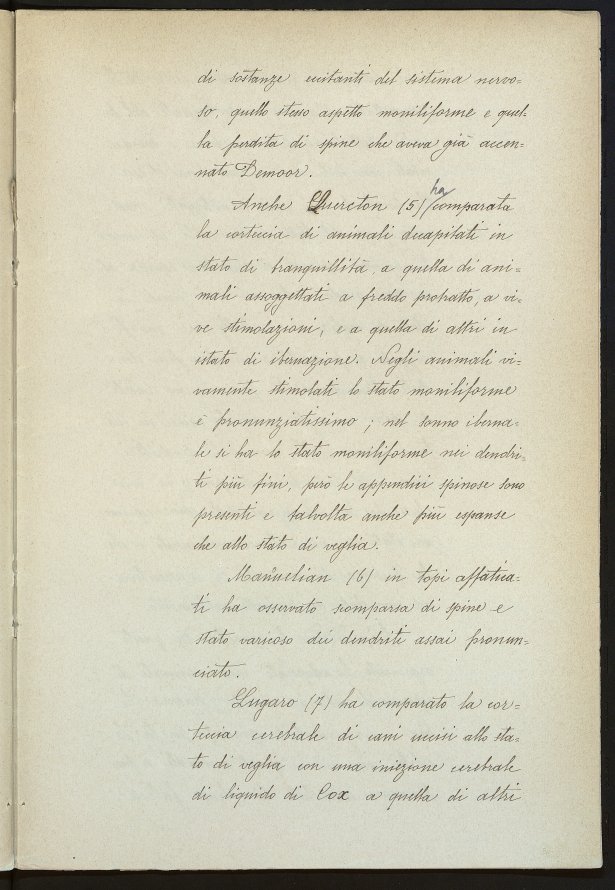 di sostanze eccitanti del sistema nervo=
so, quello stesso aspetto moniliforme e quel-
la perdita di spine che aveva già accen-
nato Demoor.
Anche Querton (5) ha comparata
la corteccia di animali decapitati in
stato di tranquillità, a quella di ani=
mali assoggettati a freddo protratto, a vi=
ve stimolazioni, e a quella di altri in
istato di ibernazione. Negli animali vi=
vamente stimolati lo stato moniliforme
è pronunziatissimo; nel sonno iberna=
le si ha lo stato moniliforme nei dendri=
ti più fini, però le appendici spinose sono
presenti e talvolta anche più espanse
che allo stato di veglia.
Manuelian (6) in topi affatica=
ti ha osservato scomparsa di spine e
stato varicoso dei dendriti assai pronun=
ciato.
Lugaro (7) ha comparato la cor=
teccia cerebrale di cani uccisi allo sta=
to di veglia con una iniezione cerebrale
di liquido di Cox a quella di altri